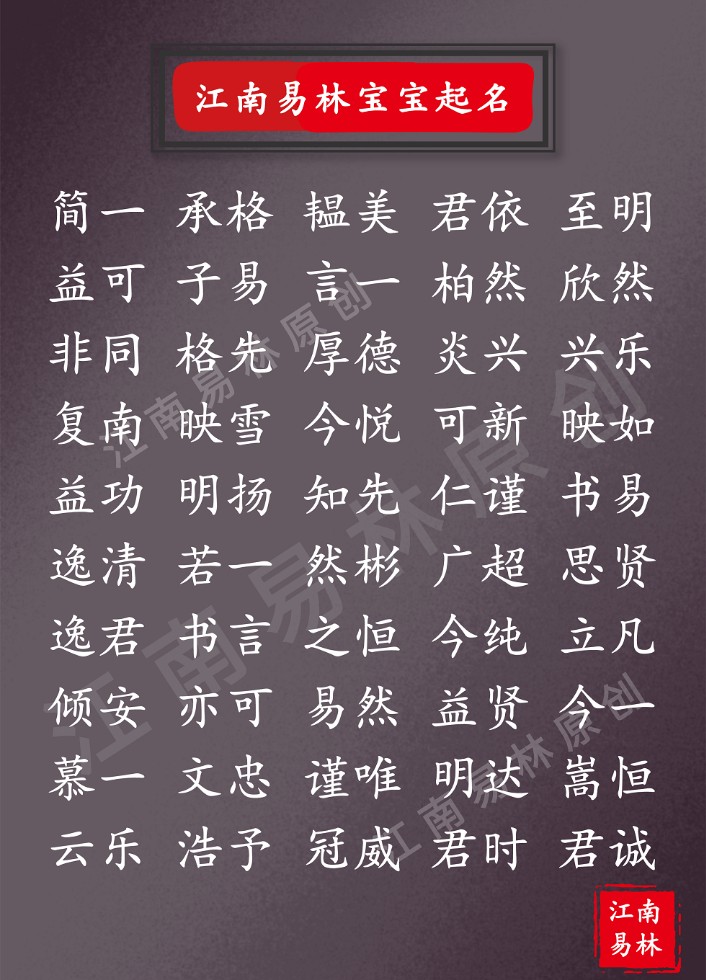 江南易林宝宝起名
简一 承格 韫美 君依 至明
益可 子易 言一 柏然 欣然
非同 格先 厚德 炎兴 兴乐
复南 映雪 今悦 可新 映如
益功 明扬 知先 仁谨 书易
逸清 若一 然彬 广超 思贤
逸君 书言 之恒 今纯 立凡
倾安 亦可 易然 益贤 今一
慕一 文忠 谨唯 明达 嵩恒
云乐 浩予 冠威 君时 君诚
江南易林原创
江南易林原创
江南易林原创
江南
易林